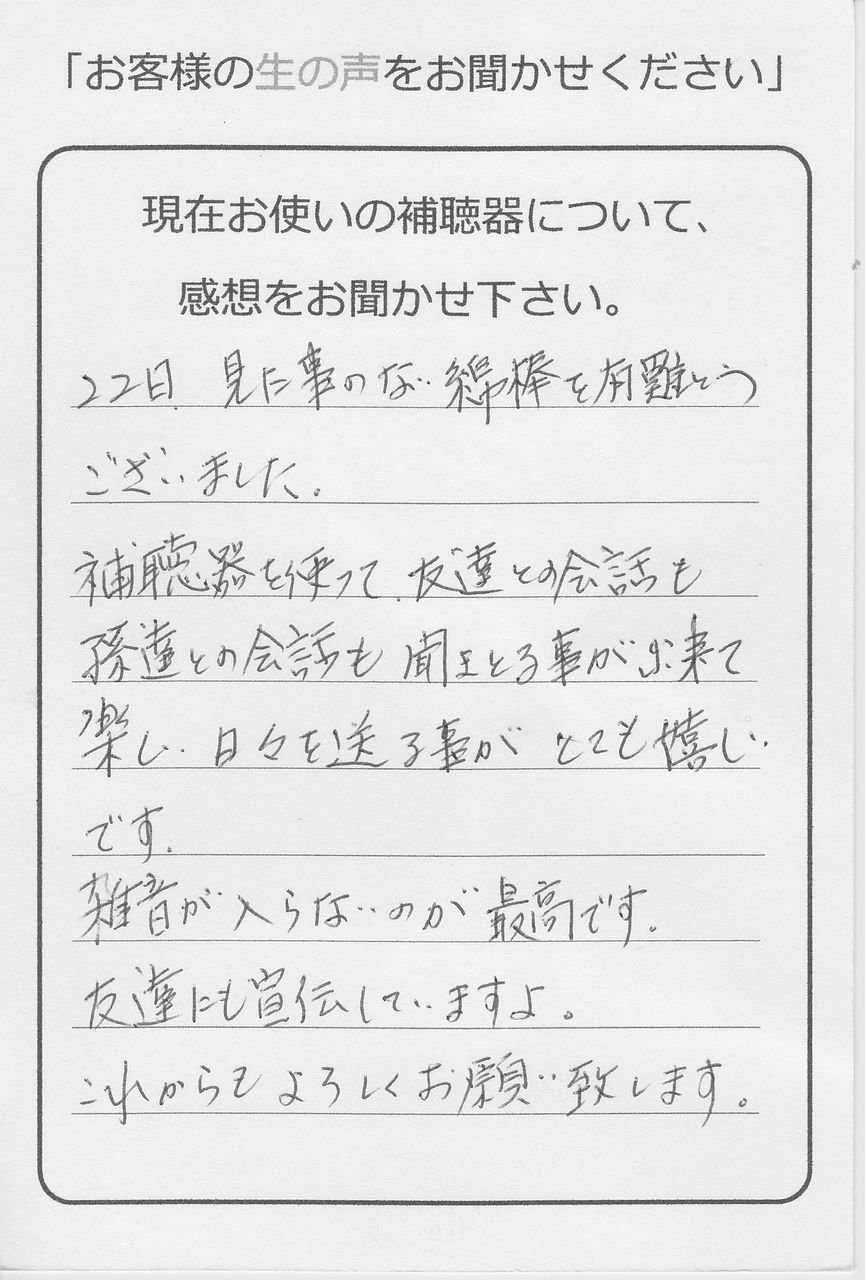 「お客様の生の声をお聞かせください」
現在お使いの補聴器について、
感想をお聞かせ下さい。
22日 見た事のない綿棒を有難とう
ございました。
補聴器を使って、友達との会話も
孫達との会話も聞きとる事が出来て
楽しい日々を送る事がとても嬉しい
です。
雑音が入らないのが最高です。
友達にも宣伝していますよ。
これからもよろしくお願い致します。